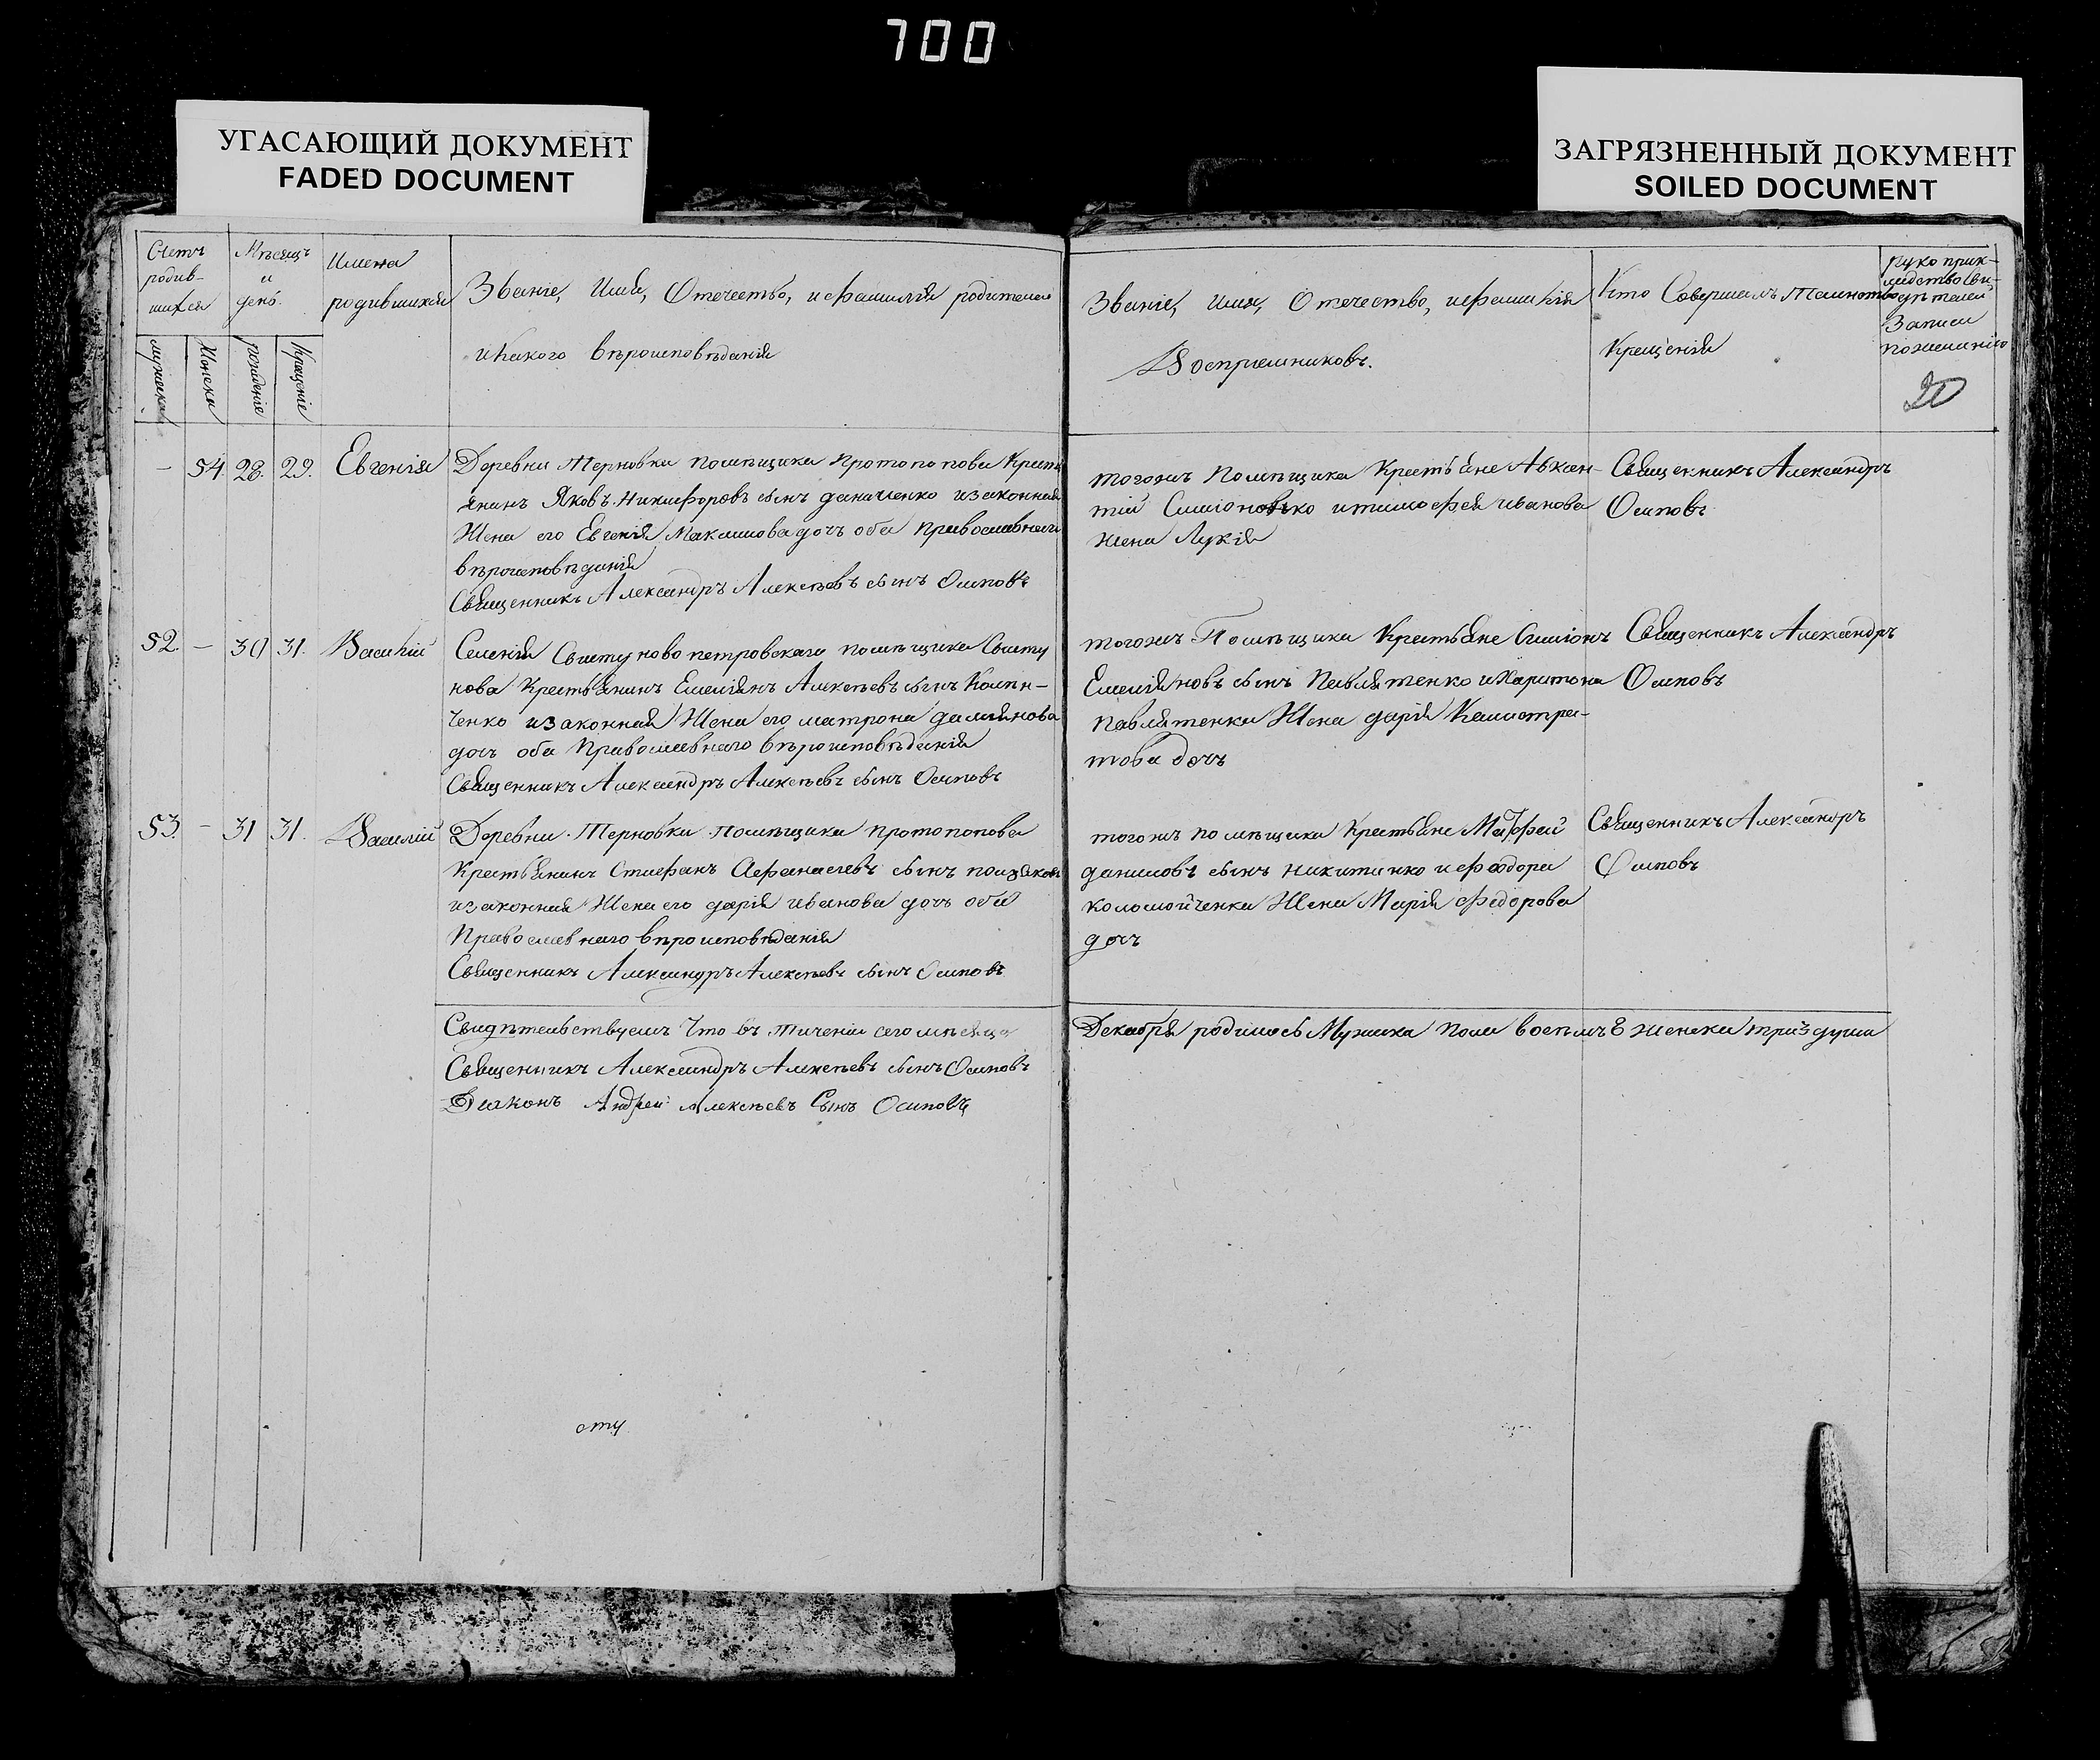 700
УГАСАЮЩИЙ ДОКУМЕНТ
FADED DOCUMENT
ЗАГРЯЗНЕННЫЙ ДОКУМЕНТ
SOILED DOCUMENT
Счетъ родив-шихся
Мѣсяцъ и день
Имена родившихся
Званіе, Имя, Отечество, и фамилія родителей
и какого вѣроисповѣданія
мужеска
Женска
рожденіе
Крещеніе
Званіе, имя, Отечество, и фамилія
Воспріемниковъ.
Кто Совершалъ Таинство
Крещенія
руко прик-
ладство сви-
дѣтелей
Записи
по желанію
20
— 54 28. 29. Евгенія
Деревни Терновки помѣщика Протопопова Кресть
янинъ Яковъ Никифоровъ сынъ даниченко и законная
Жена его Евгенія Максимова дочь оба Православнаго
вѣроисповѣданія
Священникъ Александръ Алексѣевъ сынъ Осиповъ
тогожъ Помѣщика Крестьяне Авксен-
тій Симіоненко и тимофея иванова
жена Лукія
Священникъ Александръ
Осиповъ
52. — 30 31. Василій
Селенія Свистуново петровскаго помѣщика Свисту
нова Крестьянинъ Емеліянъ Алексѣевъ сынъ
ченко и законная Жена его матрона даміянова
дочь оба Православнаго вѣроисповѣданія
Священникъ Александръ Алексѣевъ сынъ Осиповъ
тогожъ Помѣщика Крестьяне Симіонъ
Емеліяновъ сынъ Павлятенко и Харитона
Павлятенка Жена дарія Калистра-
това дочь
Священникъ Александръ
Осиповъ
53. — 31 31. Василій
Деревни Терновки помѣщика протопопова
Крестьянинъ Стефанъ Афанасіевъ сынъ
и законная Жена его дарія иванова дочь оба
Православнаго вѣроисповѣданія
Священникъ Александръ Алексѣевъ сынъ Осиповъ
тогожъ помѣщика Крестьяне Матфей
даниловъ сынъ никитенко и феодора
коломойченка Жена Марія федорова
дочь
Священникъ Александръ
Осиповъ
Свидѣтельствуемъ Что въ тичении сего мѣсяца Декабря родилось Мужска пола восемъ 8 женска три 3 души
Священникъ Александръ Алексѣевъ сынъ Осиповъ
Диаконъ Андрей Алексѣевъ Сынъ Осиповъ